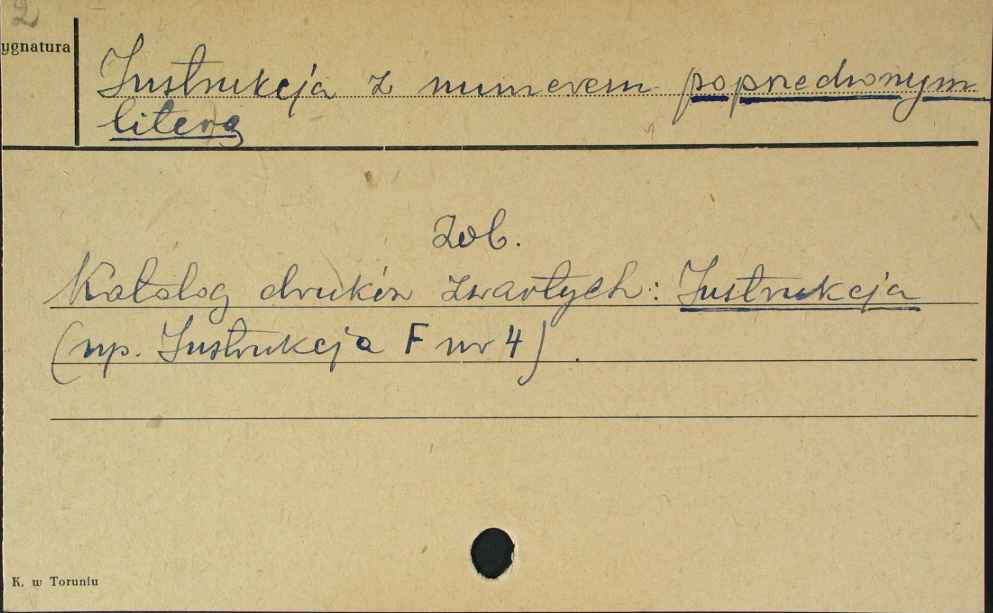 2
ygnatura
Instrukcja z numerem poprzedzonym
literą
zob.
Katalog druków zwartych: Instrukcja
(np. Instrukcja F nr 4).
K. w Toruniu